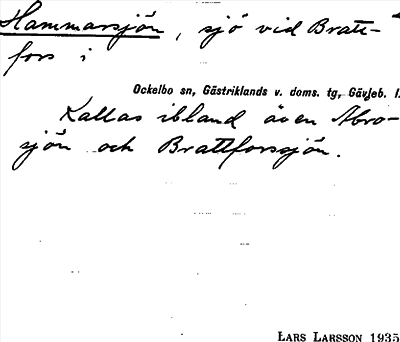 Hammarsjön, sjö vid Bratt-
fors i
Ockelbo sn, Gästriklands v. doms. tg, Gävleb. l.
Kallas ibland även Abro-
sjön och Brattforssjön.
LARS LARSSON 1935